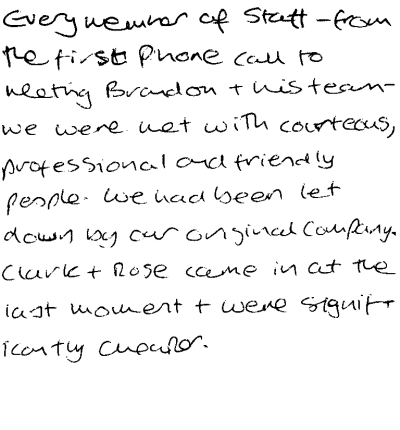 Every member of Staff - from
the first Phone call to
meeting Brandon + his team -
we were met with courteous,
professional and friendly
people. We had been let
down by our original Company.
Clark + Rose came in at the
last moment + were signif-
icantly cheaper.